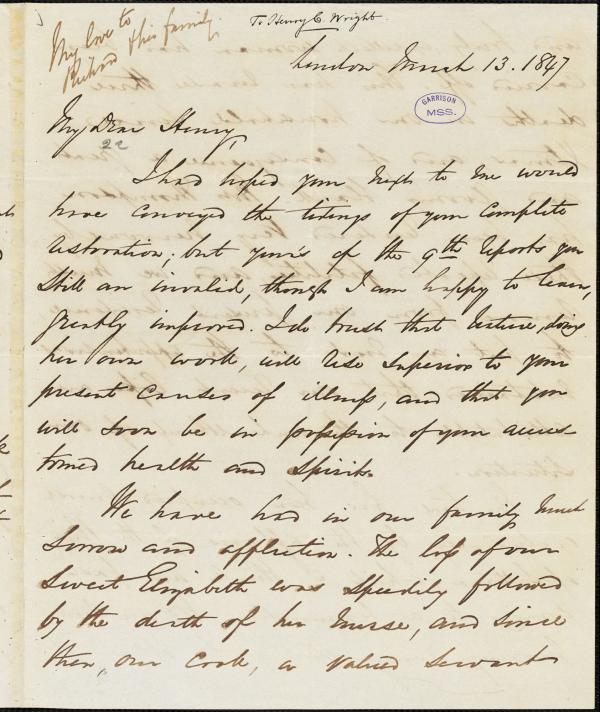 My love to
Richard & his family.
To Henry C. Wright.
London March 13. 1847
GARRISON
MSS.
My Dear Henry,
22
I had hoped your next to me would
have conveyed the tidings of your complete
restoration; but your's of the 9th reports you
still an invalid, though I am happy to learn,
greatly improved. I do trust that Nature, doing
her own work, will rise superior to your
present causes of illness, and that you
will soon be in possession of your accus-
tomed health and spirits.
We have had in our family much
sorrow and affliction. The loss of our
sweet Elizabeth was speedily followed
by the death of her nurse, and since
then, our cook, a valued servant